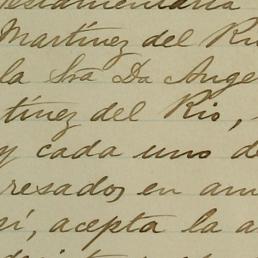 testamentaria
Martínez del Rio
la Sra Da Ange
tínez del Rio,
y cada uno de
resados en am
sí, acepta la a